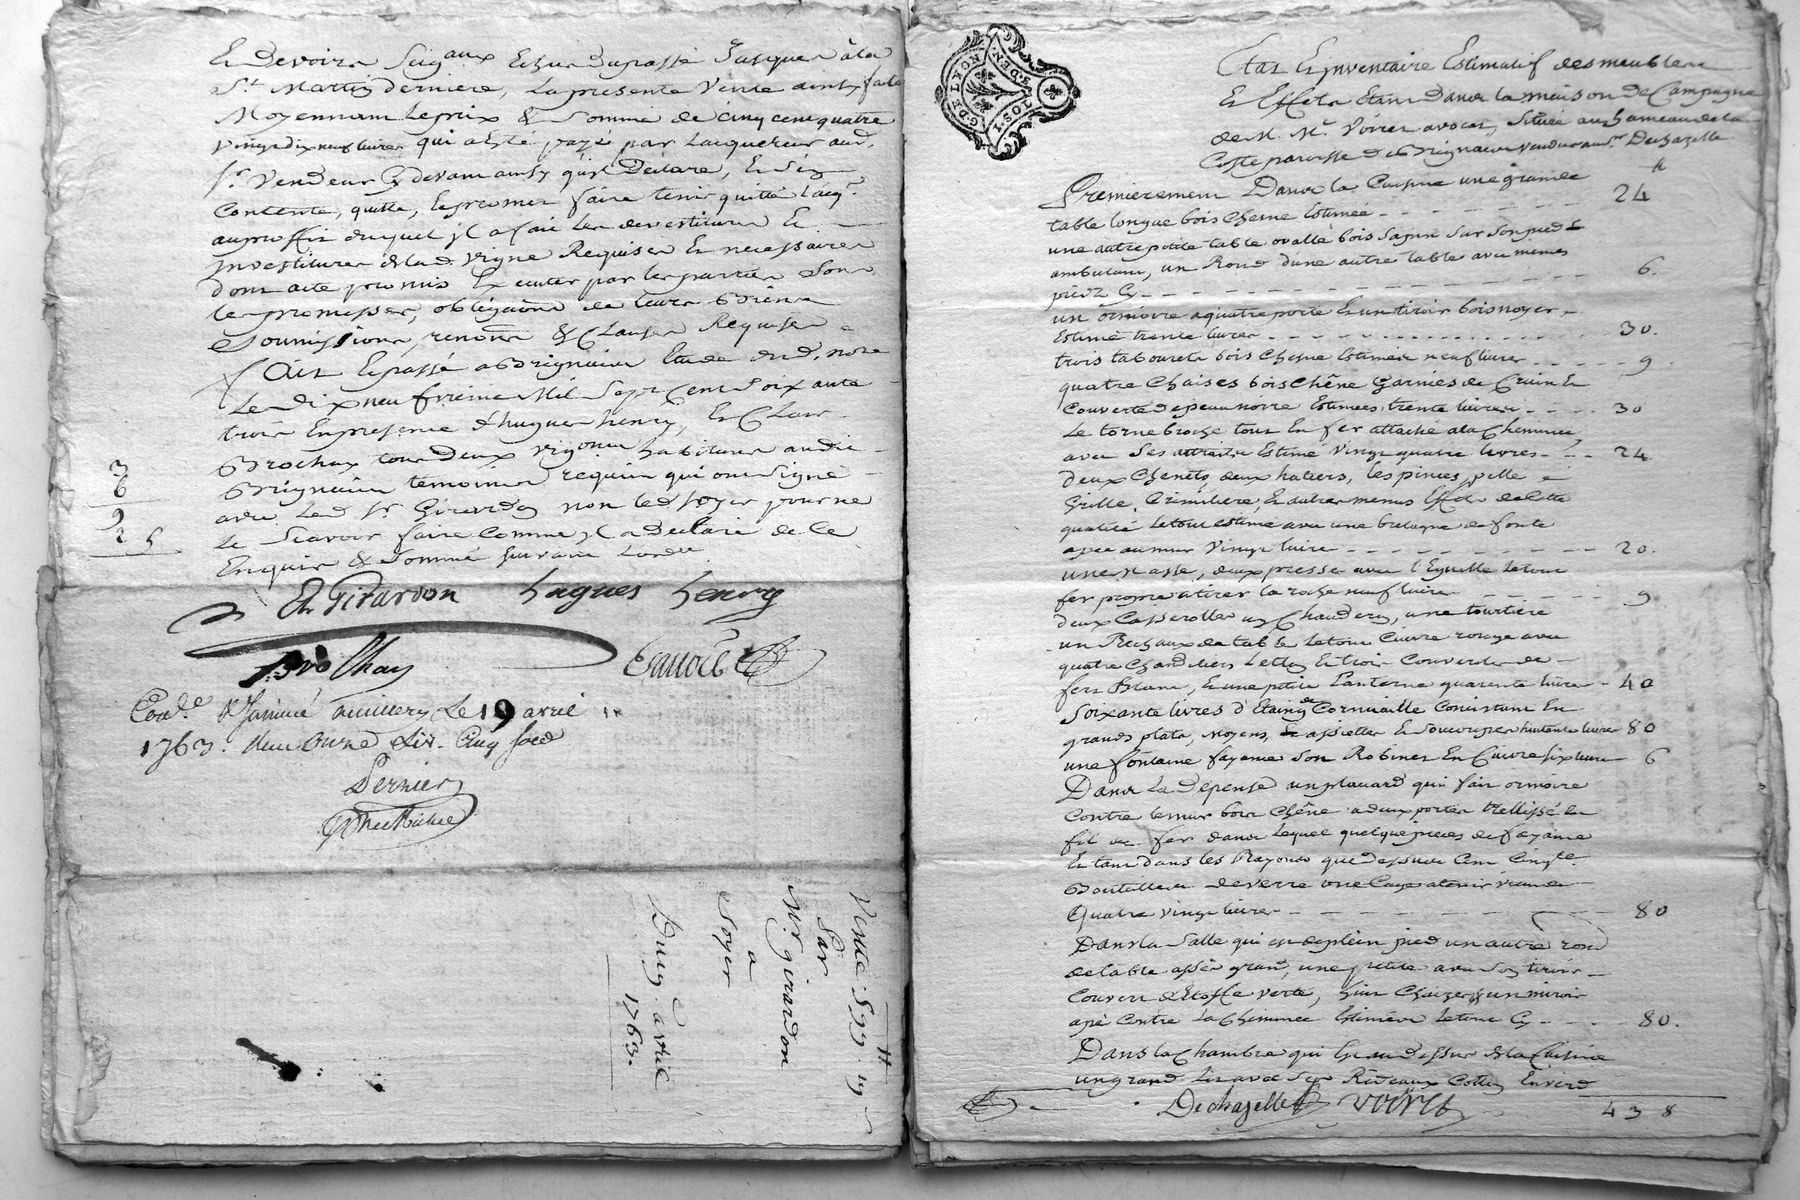 Et devoirs Seigaux Echus du passé Jusques à la
St. Martin derniere, La presente Vente ainsy faite
Moyennant Le prix & Somme de cinq cent quatre
vingt dix neuf livres qui a Esté payé par Lacquereur aud.
Sr. Vendeur devant ainsy qu'il Déclare, En
Contente, quitte, Et promet faire tenir quitte Lacqr.
au proffit duquel jl a fait Les devestitures Et
jnvestitures de lad. vigne Requises Et necessaires
Dont acte promis Executer par les parties Sous
les promesses, obligations de leurs Biens
Soumissions, renons & Clauses Requises
Fait Et passé a Brignais Etude dud. notre
Le Dix neuf Mil Sept Cent Soixante
trois En presence d'hugues henry, Et Claude
Brochay tous deux vignons habitants audit
Brignais temoins requis qui ont Signé
avec Led Sr. Girardon non led Soyer pour ne
le Scavoir faire Comme jl a declaré de ce
Enquis & Sommé Suivant Lordce
3
6
9
2 5
Girardon hugues henry
Brochay
Conlé & Jnsinué le 19 avril
1763. Reçu Liv. Cinq sold
Dernier
Vente 599 19
Par
Mr girardon
a
Soyer
Du 19 avril
1763.
G. DE LYON. ROA.
1. SOL. S. DEN.
Etat Et jnventaire Estimatif des meubles
Et Effets Etant Dans la maison de Campagne
de M. Mr. Voiret avocat, Située au hameau de la
Coste paroisse de Brignais vendus a Sr. Dechazelle
Premierement Dans la Cuisine une grande
table longue bois Chesne Estimée - - - 24
une autre petite table ovalle bois Sapin Sur Son pied
ambulant, un Rond d'une autre table avec memes
pieds Cy - - - 6.
un ormoire a quatre porte Et un tiroir bois noyer
Estimé trente livres - - - 30.
trois tabourets bois Chesne Estimés neuf livres - - - 9
quatre Chaises bois Chêne Garnies de Crain Et
Couverte de peau noire Estimées trente livres - - - 30
Le torne broche tout En fer attaché a la Cheminée
avec Ses attraits Estimé Vingt quatre livres - - - 24
deux Chenets, deux hatiers, les pinces, pelle
Grille, Crimiliere, Et autres menus Effets de Cette
qualité Le tout estimé avec une bretagne de fonte
apée au mur Vingt livre - - - 20.
une, deux presse avec l'Eguille Le tout
fer propre a tirer la roche neuf livres - - - 9
deux Casserolles un Chaudery, une tourtiere
un Rechaux de table Le tout Cuivre rouge avec
quatre Chandeliers Letton Et trois Couvercles de
fer Blanc, Et une petite Lanterne quarente livre - 40
Soixante livres d'Etaing de Cornuaille Consistant En
grands plats, Moyens, assiettes Et Soucoupes huitante livres 80
une fontaine fayance Son Robinet En Cuivre six livres 6
Dans La Depense un placard qui fait ormoire
Contre le mur bois Chêne a deux portes trellissé En
fil de fer dans Lequel quelque pieces de fayance
Et tant dans les Rayons que dessus Cent Cinqte.
Bouteilles de verre une Cage a tenir viande
Quatre vingt livres - - - 80
Dans la Salle qui est de plein pied un autre rond
de table assés grand, une petite avec Son tiroir
Couvert d'Etoffe verte, huit Chaizes & un miroir
apé Contre La Chiminée Estimées Le tout Cy - - - 80.
Dans la Chambre qui Est au dessus de la Cuisine
un grand Lit avec Ses Rideaux Cotton En verd
Dechazelle Voiret 438